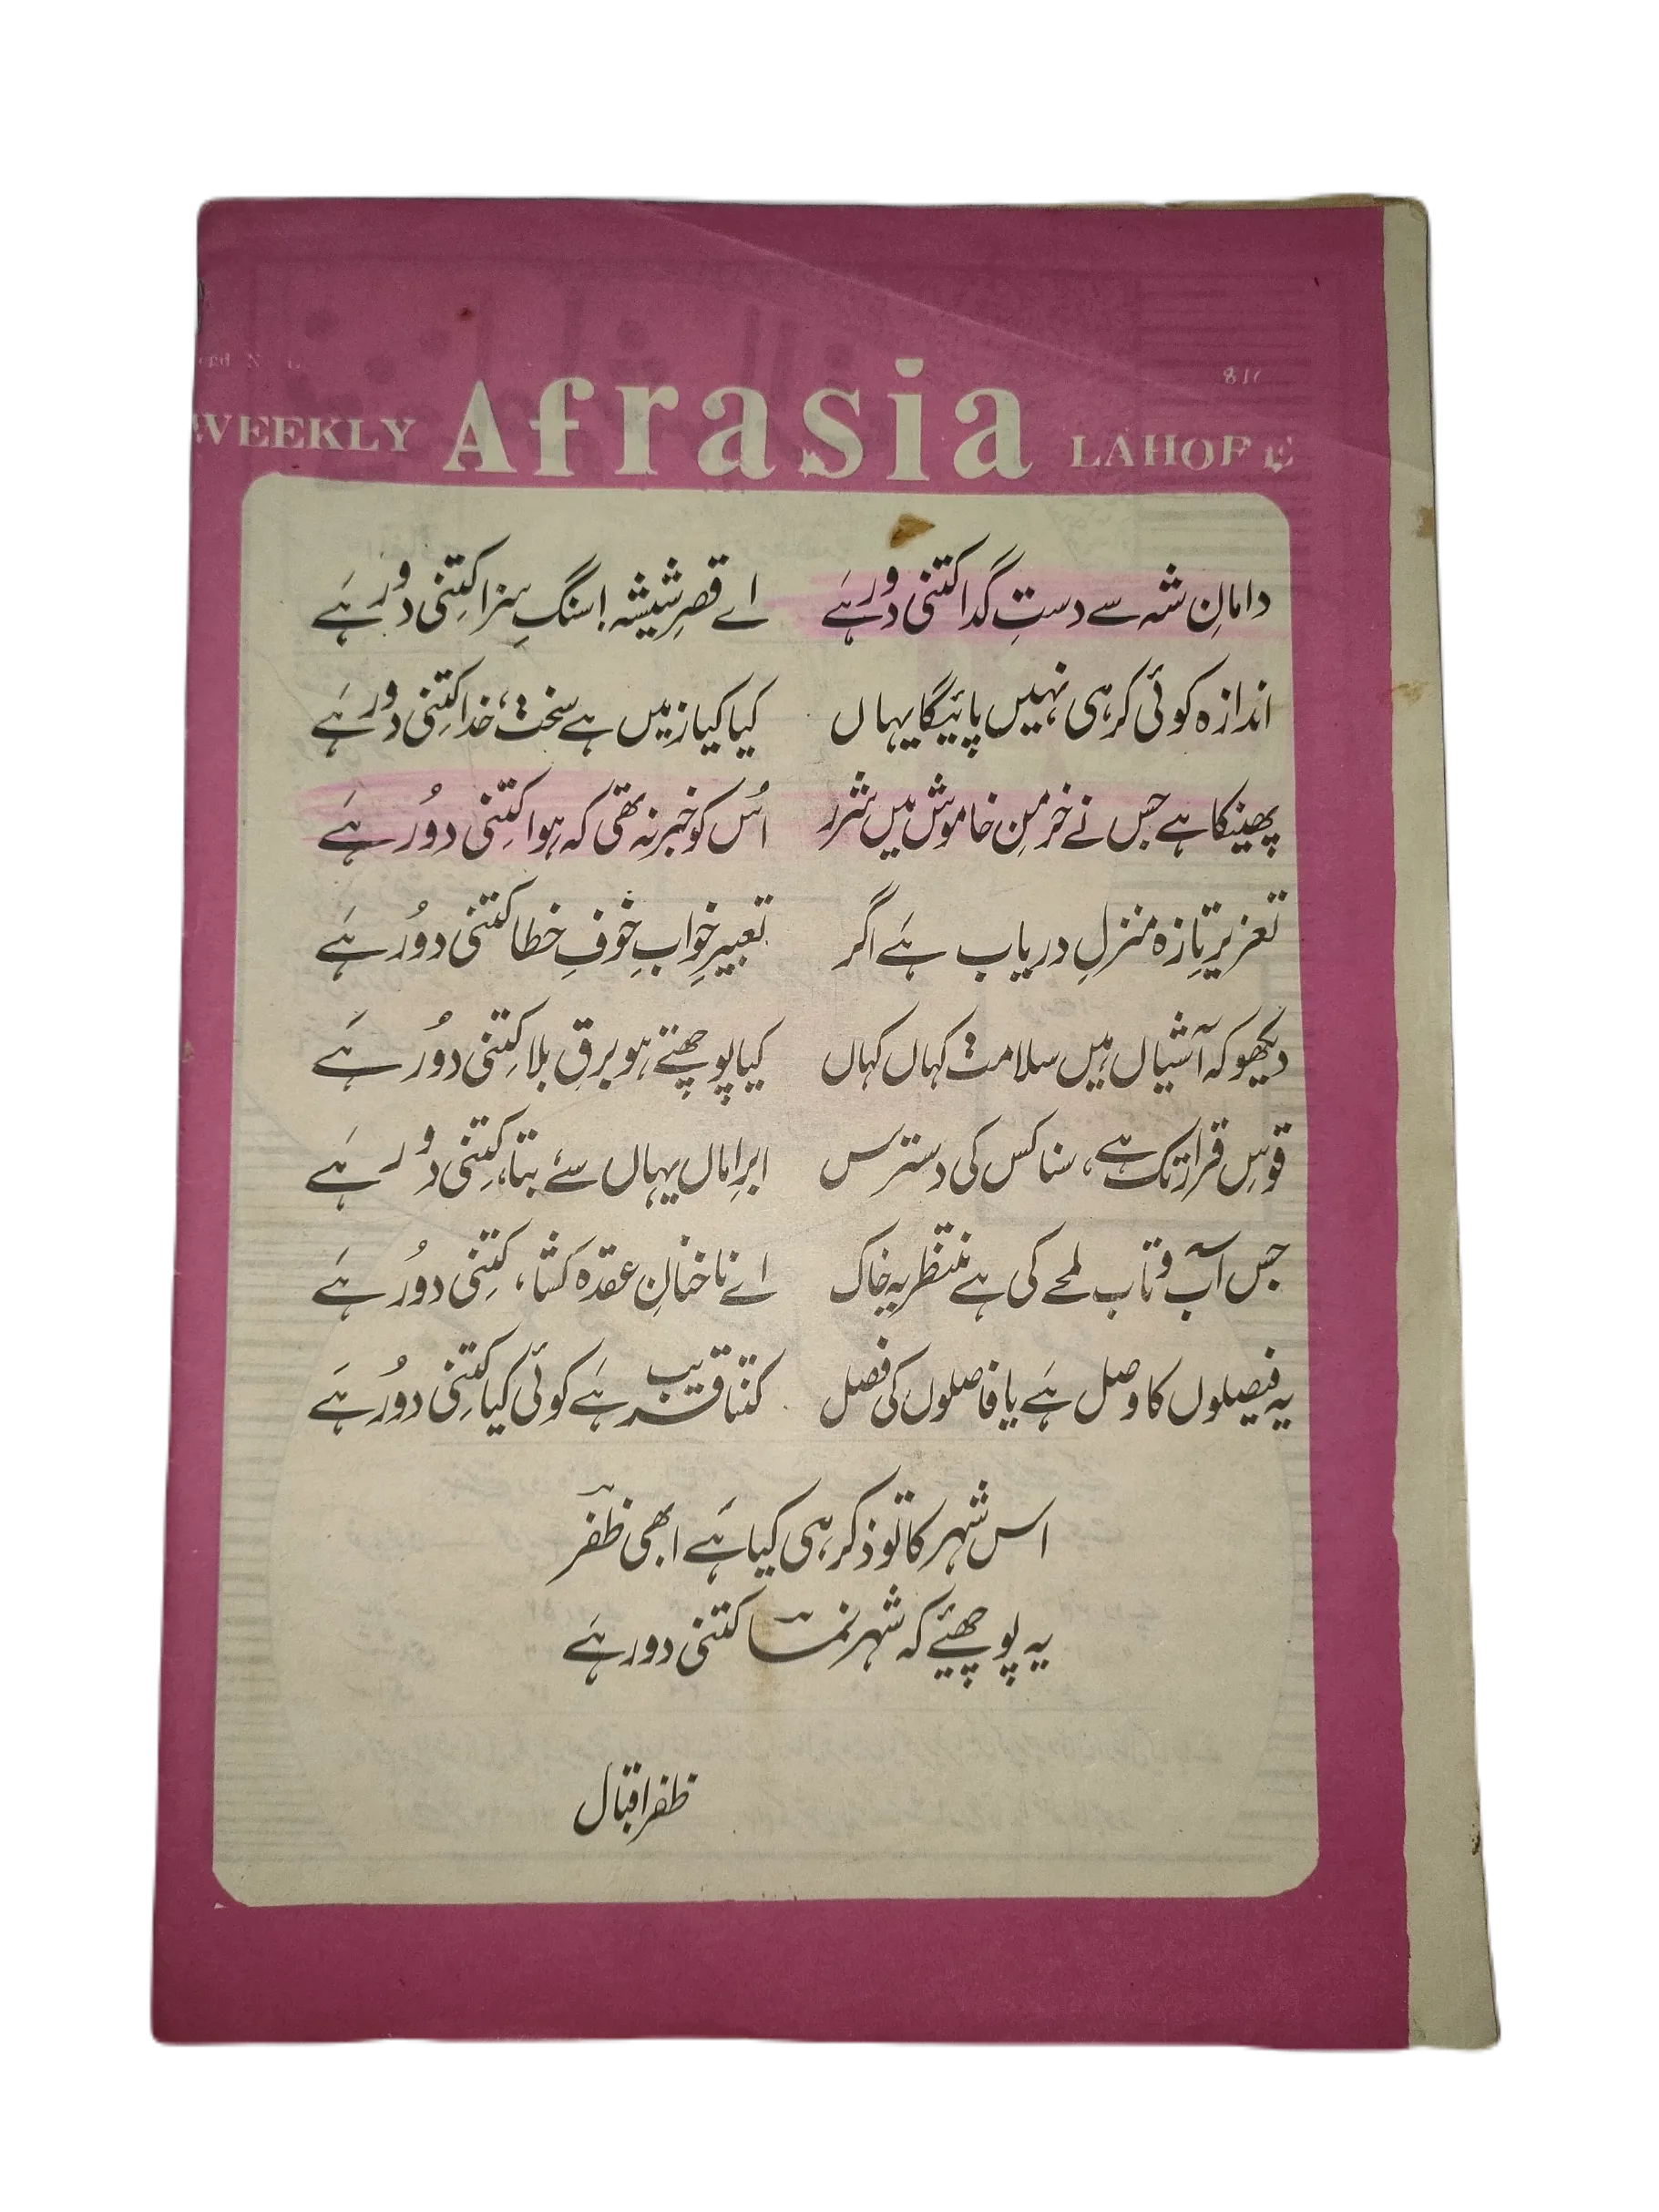 WEEKLY Afrasia LAHORE
دامانِ شہ سے دستِ گدا کتنی دور ہے    اے قصرِ شیشہ! سنگِ سزا کتنی دور ہے
اندازہ کوئی کر ہی نہیں پائیگا یہاں    کیا کیا زمیں ہے سخت، خدا کتنی دور ہے
پھینکا ہے جس نے خرمنِ خاموش میں شرر    اُس کو خبر نہ تھی کہ ہوا کتنی دُور ہے
تعزیرِ تازہ منزلِ دریاب ہے اگر    تعبیرِ خوابِ خوفِ خطا کتنی دُور ہے
دیکھو کہ آشیاں ہیں سلامت کہاں کہاں    کیا پوچھتے ہو برقِ بلا کتنی دُور ہے
قوسِ قرار تک ہے، سنا کس کی دسترس    ابرِ اماں یہاں سے بتا، کتنی دور ہے
جس آب و تاب لمحے کی ہے منتظر یہ خاک    اے ناخنانِ عقدہ کشا، کتنی دُور ہے
یہ فیصلوں کا وصل ہے یا فاصلوں کی فصل    کتنا قریب ہے کوئی کیا کتنی دُور ہے
اس شہر کا تو ذکر ہی کیا ہے ابھی ظفرؔ
یہ پوچھئیے کہ شہر تمنا کتنی دور ہے
ظفر اقبال